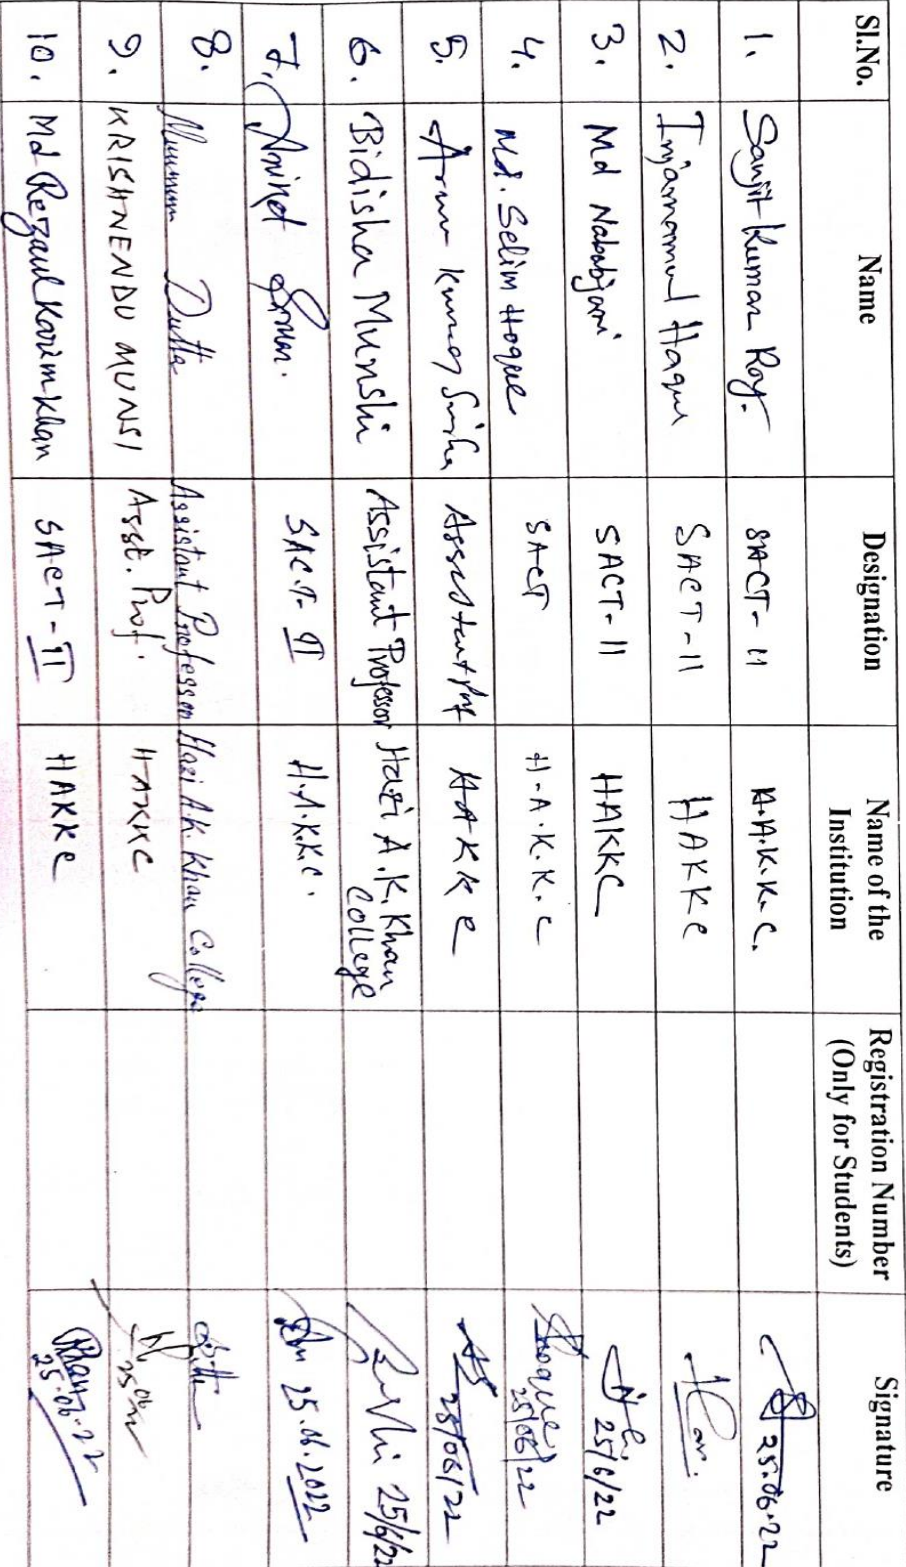 Sl.No. Name Designation Name of the Institution Registration Number (Only for Students) Signature
1. Sanjit Kumar Roy. SACT-II H.A.K.K.C. 25.06.22
2. Injamamul Haque SACT-II HAKKC
3. Md Nababjani SACT-II HAKKC 25/6/22
4. Md. Selim Hoque SACT H.A.K.K.C Shoque 25/06/22
5. Arun Kumar Sinha Assistant Prof HAKKC 25/06/22
6. Bidisha Munshi Assistant Professor Hazi A.K. Khan College 25/6/22
7. SACT-II H.A.K.K.C. 25.06.2022
8. Mumum Dutta Assistant Professor Hazi A.K. Khan College
9. KRISHNENDU MUNSI Asst. Prof. HAKKC
10. Md Rezaul Karim Khan SACT-II HAKKC Khan 25.06.22